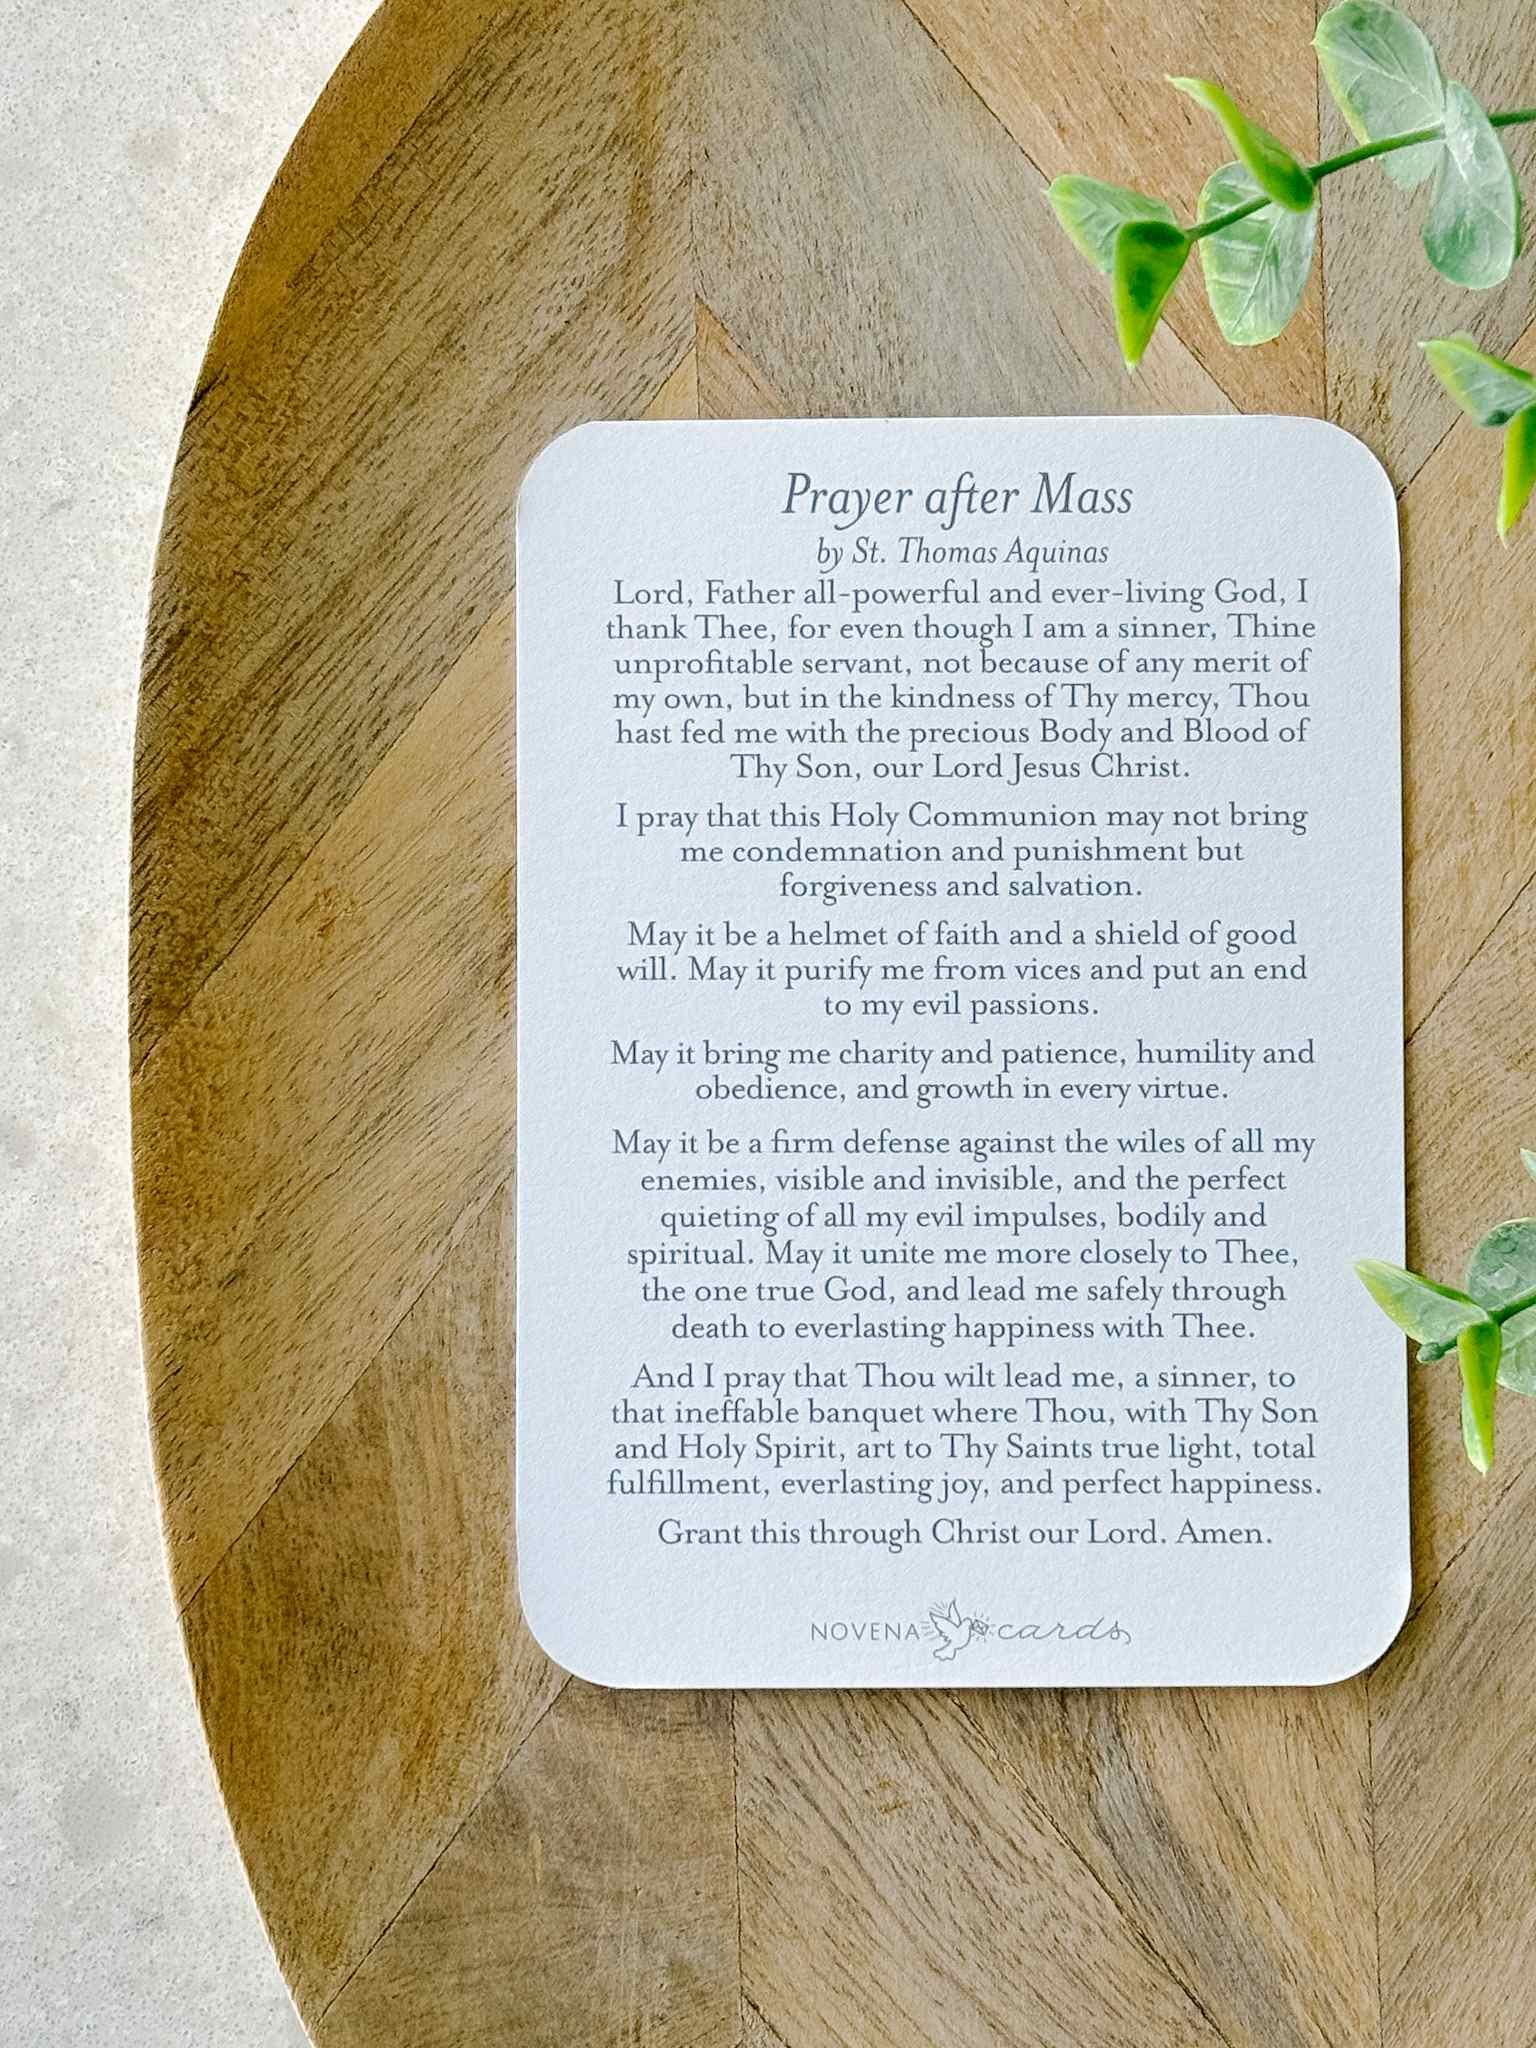 Prayer after Mass
by St. Thomas Aquinas
Lord, Father all-powerful and ever-living God, I
thank Thee, for even though I am a sinner, Thine
unprofitable servant, not because of any merit of
my own, but in the kindness of Thy mercy, Thou
hast fed me with the precious Body and Blood of
Thy Son, our Lord Jesus Christ.
I pray that this Holy Communion may not bring
me condemnation and punishment but
forgiveness and salvation.
May it be a helmet of faith and a shield of good
will. May it purify me from vices and put an end
to my evil passions.
May it bring me charity and patience, humility and
obedience, and growth in every virtue.
May it be a firm defense against the wiles of all my
enemies, visible and invisible, and the perfect
quieting of all my evil impulses, bodily and
spiritual. May it unite me more closely to Thee,
the one true God, and lead me safely through
death to everlasting happiness with Thee.
And I pray that Thou wilt lead me, a sinner, to
that ineffable banquet where Thou, with Thy Son
and Holy Spirit, art to Thy Saints true light, total
fulfillment, everlasting joy, and perfect happiness.
Grant this through Christ our Lord. Amen.
NOVENA cards